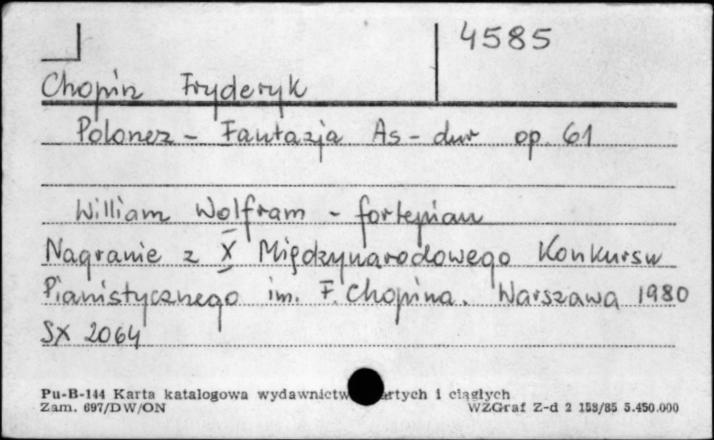 4585
Chopin Fryderyk
Polonez - Fantazja As-dur op. 61
William Wolfram - fortepian
Nagranie z X Międzynarodowego Konkursu
Pianistycznego im. F. Chopina. Warszawa 1980
SX 2064
Pu-B-144 Karta katalogowa wydawnictw artych i ciągłych
Zam. 697/DW/ON WZGraf Z-d 2 158/85 5.450.000